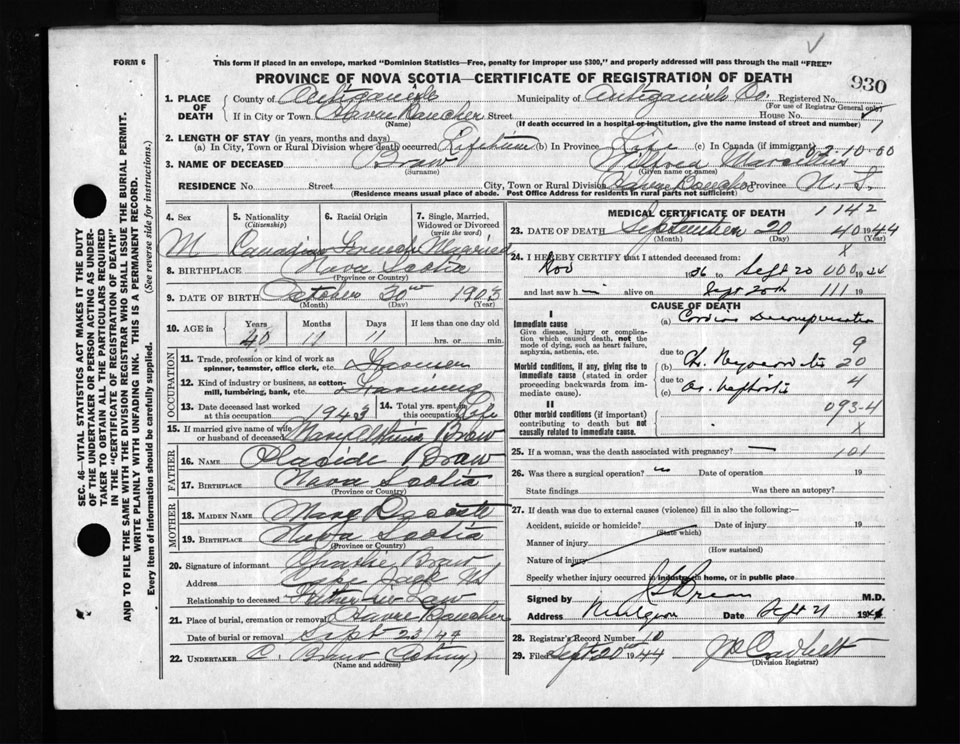 FORM 6
This form if placed in an envelope, marked "Dominion Statistics—Free, penalty for improper use $300," and properly addressed will pass through the mail "FREE"
PROVINCE OF NOVA SCOTIA—CERTIFICATE OF REGISTRATION OF DEATH
930
SEC. 46—VITAL STATISTICS ACT MAKES IT THE DUTY
OF THE UNDERTAKER OR PERSON ACTING AS UNDER-
TAKER TO OBTAIN ALL THE PARTICULARS REQUIRED
IN THE "CERTIFICATE OF REGISTRATION OF DEATH"
AND TO FILE THE SAME WITH THE DIVISION REGISTRAR WHO SHALL ISSUE THE BURIAL PERMIT.
WRITE PLAINLY WITH UNFADING INK. THIS IS A PERMANENT RECORD.
Every item of information should be carefully supplied. (See reverse side for instructions.)
1. PLACE OF DEATH
County of Antigonish Municipality of Antigonish Co. Registered No.
(For use of Registrar General only)
If in City or Town Havre Boucher Street House No.
(Name) (If death occurred in a hospital or institution, give the name instead of street and number)
2. LENGTH OF STAY (in years, months and days)
(a) In City, Town or Rural Division where death occurred Lifetime (b) In Province Life (c) In Canada (if immigrant) 02-10-00
3. NAME OF DECEASED Braw
(Surname) (Given name or names)
RESIDENCE No. Street City, Town or Rural Division Havre Boucher Province N.S.
(Residence means usual place of abode. Post Office Address for Residents in rural parts not sufficient)
4. Sex 5. Nationality 6. Racial Origin 7. Single, Married,
(Citizenship) Widowed or Divorced
(write the word)
M Canadian French Married
8. BIRTHPLACE Nova Scotia
(Province or Country)
9. DATE OF BIRTH October 30 1903
(Month) (Day) (Year)
10. AGE in Years Months Days If less than one day old
40 11 11 hrs. or min.
OCCUPATION
11. Trade, profession or kind of work as
spinner, teamster, office clerk, etc.
12. Kind of industry or business, as cotton-
mill, lumbering, bank, etc. Farming
13. Date deceased last worked 14. Total yrs. spent
at this occupation 1943 in this occupation Life
15. If married give name of wife
or husband of deceased Mary Braw
FATHER
16. NAME Placide Braw
17. BIRTHPLACE Nova Scotia
(Province or Country)
MOTHER
18. MAIDEN NAME Mary Decoste
19. BIRTHPLACE Nova Scotia
(Province or Country)
20. Signature of informant Charlie Braw
Address Cape Jack NS
Relationship to deceased Father in Law
21. Place of burial, cremation or removal Havre Boucher
Date of burial or removal Sept 23/44
22. UNDERTAKER C. Braw
(Name and address)
MEDICAL CERTIFICATE OF DEATH 1142
23. DATE OF DEATH September 20 1944
(Month) (Day) (Year)
24. I HEREBY CERTIFY that I attended deceased from:
Nov 1936 to Sept 20 1944
and last saw h alive on Sept 20th 111 19
CAUSE OF DEATH
I
Immediate cause
Give disease, injury or complica-
tion which caused death, not the
mode of dying, such as heart failure,
asphyxia, asthenia, etc.
(a) Cardiac Decompensation
9
Morbid conditions, if any, giving rise to
immediate cause (stated in order
proceeding backwards from im-
mediate cause).
due to
(b) Ch. Myocarditis 20
due to
(c) Nephritis 4
II
Other morbid conditions (if important)
contributing to death but not
causally related to immediate cause.
093-4
X
25. If a woman, was the death associated with pregnancy? — 101
26. Was there a surgical operation? Date of operation 19
State findings Was there an autopsy?
27. If death was due to external causes (violence) fill in also the following:—
Accident, suicide or homicide? Date of injury 19
(State which)
Manner of injury
(How sustained)
Nature of injury
Specify whether injury occurred in industry, in home, or in public place
Signed by M.D.
Address Mulgrave Date Sept 21 1944
28. Registrar's Record Number 10
29. Filed Sept 20th 1944
(Division Registrar)